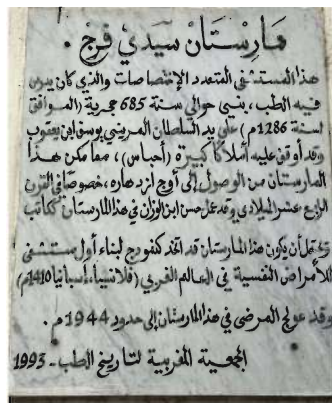 مارستان سيدي فرج .
هذا المستشفى المتعدد الإختصاصات والذي كان يدرس
فيه الطب، بني حوالي سنة 685 هجرية (الموافق
لسنة 1286م) على يد السلطان المريني يوسف ابن يعقوب
وقد أوقف عليه أملاكا كبيرة (أحباس)، مما مكن هذا
المارستان من الوصول إلى أوج ازدهاره، خصوصا في القرن
الرابع عشر الميلادي وقد عمل حسن ابن الوزان في هذا المارستان ككاتب
يحتمل أن يكون هذا المارستان قد اتخذ كنموذج لبناء أول مستشفى
للأمراض النفسية في العالم الغربي (فلانسيا، إسبانيا 1410م)
وقد عولج المرضى في هذا المارستان إلى حدود 1944م .
الجمعية المغربية لتاريخ الطب - 1993